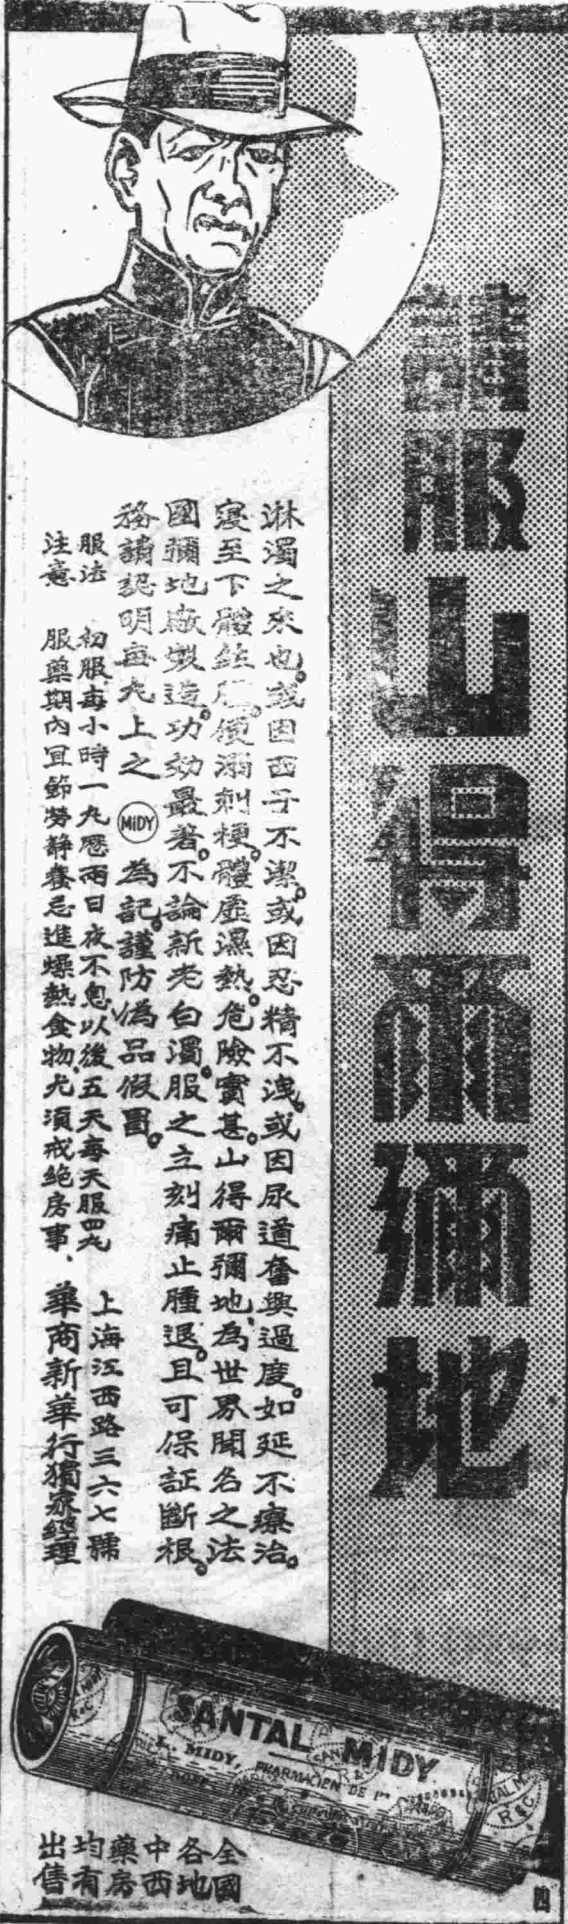 請服山得爾彌地
淋濁之來也。或因西子不潔。或因忍精不洩。或因尿道奮興過度。如延不療治。
寖至下體 便溺刺梗。體虛濕熱。危險實甚。山得爾彌地、為世界聞名之法
國彌地廠製造。功効最著。不論新老白濁。服之立刻痛止腫退。且可保証斷根。
務請認明每丸上之 MIDY 為記。謹防偽品假冒。
服法 初服每小時一丸歷兩日夜不息以後五天每天服四丸
注意 服藥期內宜節勞靜養忌進燥熱食物、尤須戒絕房事、
上海江西路三六七號
華商新華行獨家經理
SANTAL MIDY
MIDY, PHARMACIEN DE 1re
R & C
全國
各地
中西
藥房
均有
出售
四